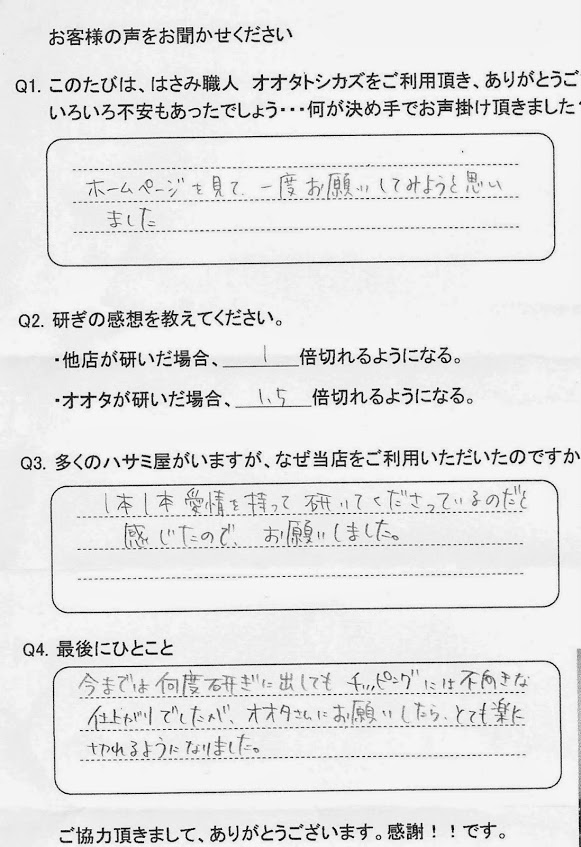 お客様の声をお聞かせください
Q1. このたびは、はさみ職人 オオタトシカズをご利用頂き、ありがとうご
いろいろ不安もあったでしょう・・・何が決め手でお声掛け頂きました
ホームページを見て、一度お願いしてみようと思い
ました
Q2. 研ぎの感想を教えてください。
・他店が研いだ場合、 1 倍切れるようになる。
・オオタが研いだ場合、 1.5 倍切れるようになる。
Q3. 多くのハサミ屋がいますが、なぜ当店をご利用いただいたのですか
1本1本愛情を持って研いでくださっているのだと
感じたので、お願いしました。
Q4. 最後にひとこと
今までは何度研ぎに出しても チッピングには不向きな
仕上がりでしたが、オオタさんにお願いしたら、とても楽に
切れるようになりました。
ご協力頂きまして、ありがとうございます。感謝！！です。